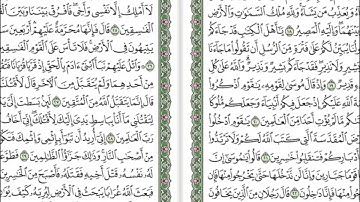 وَيُعَذِّبُ مَن يَشَآءُ وَلِلَّهِ مُلْكُ السَّمَٰوَٰتِ وَالْأَرْضِ
بَيْنَهُمَا وَإِلَيْهِ الْمَصِيرُ ١٨ يَٰٓأَهْلَ الْكِتَٰبِ قَدْ جَآءَكُمْ
يُبَيِّنُ لَكُمْ عَلَىٰ فَتْرَةٍ مِّنَ الرُّسُلِ أَن تَقُولُوا مَا جَآءَنَا
بَشِيرٍ وَلَا نَذِيرٍ فَقَدْ جَآءَكُم بَشِيرٌ وَنَذِيرٌ وَاللَّهُ عَلَىٰ كُلِّ
قَدِيرٌ ١٩ وَإِذْ قَالَ مُوسَىٰ لِقَوْمِهِ يَٰقَوْمِ اذْكُرُوا
اللَّهِ عَلَيْكُمْ إِذْ جَعَلَ فِيكُمْ أَنۢبِيَآءَ وَجَعَلَكُم مُّلُوكًا
مَّا لَمْ يُؤْتِ أَحَدًا مِّنَ الْعَٰلَمِينَ ٢٠ يَٰقَوْمِ ادْخُلُوا
الْمُقَدَّسَةَ الَّتِي كَتَبَ اللَّهُ لَكُمْ وَلَا تَرْتَدُّوا
أَدْبَارِكُمْ فَتَنقَلِبُوا خَٰسِرِينَ ٢١ قَالُوا يَٰمُوسَىٰٓ إِنَّ
قَوْمًا جَبَّارِينَ وَإِنَّا لَن نَّدْخُلَهَا حَتَّىٰ يَخْرُجُوا مِنْهَا فَإِن
مِنْهَا فَإِنَّا دَٰخِلُونَ ٢٢ قَالَ رَجُلَانِ مِنَ الَّذِينَ يَخَافُونَ
لَآ أَمْلِكُ إِلَّا نَفْسِي وَأَخِي فَافْرُقْ بَيْنَنَا وَبَيْنَ الْقَوْمِ
الْفَٰسِقِينَ ٢٥ قَالَ فَإِنَّهَا مُحَرَّمَةٌ عَلَيْهِمْ أَرْبَعِينَ
يَتِيهُونَ فِي الْأَرْضِ فَلَا تَأْسَ عَلَى الْقَوْمِ الْفَٰسِقِينَ
وَاتْلُ عَلَيْهِمْ نَبَأَ ابْنَيْ ءَادَمَ بِالْحَقِّ إِذْ قَرَّبَا قُرْبَانًا
مِنْ أَحَدِهِمَا وَلَمْ يُتَقَبَّلْ مِنَ الْءَاخَرِ قَالَ لَأَقْتُلَنَّكَ
إِنَّمَا يَتَقَبَّلُ اللَّهُ مِنَ الْمُتَّقِينَ ٢٧ لَئِنۢ بَسَطتَ إِلَيَّ يَدَكَ
مَآ أَنَا۠ بِبَاسِطٍ يَدِيَ إِلَيْكَ لِأَقْتُلَكَ إِنِّيٓ أَخَافُ اللَّهَ
رَبَّ الْعَٰلَمِينَ ٢٨ إِنِّيٓ أُرِيدُ أَن تَبُوٓأَ بِإِثْمِي وَإِثْمِكَ
مِنْ أَصْحَٰبِ النَّارِ وَذَٰلِكَ جَزَٰٓؤُا الظَّٰلِمِينَ ٢٩ فَطَوَّعَتْ
نَفْسُهُ قَتْلَ أَخِيهِ فَقَتَلَهُ فَأَصْبَحَ مِنَ الْخَٰسِرِينَ
فَبَعَثَ اللَّهُ غُرَابًا يَبْحَثُ فِي الْأَرْضِ لِيُرِيَهُ كَيْفَ